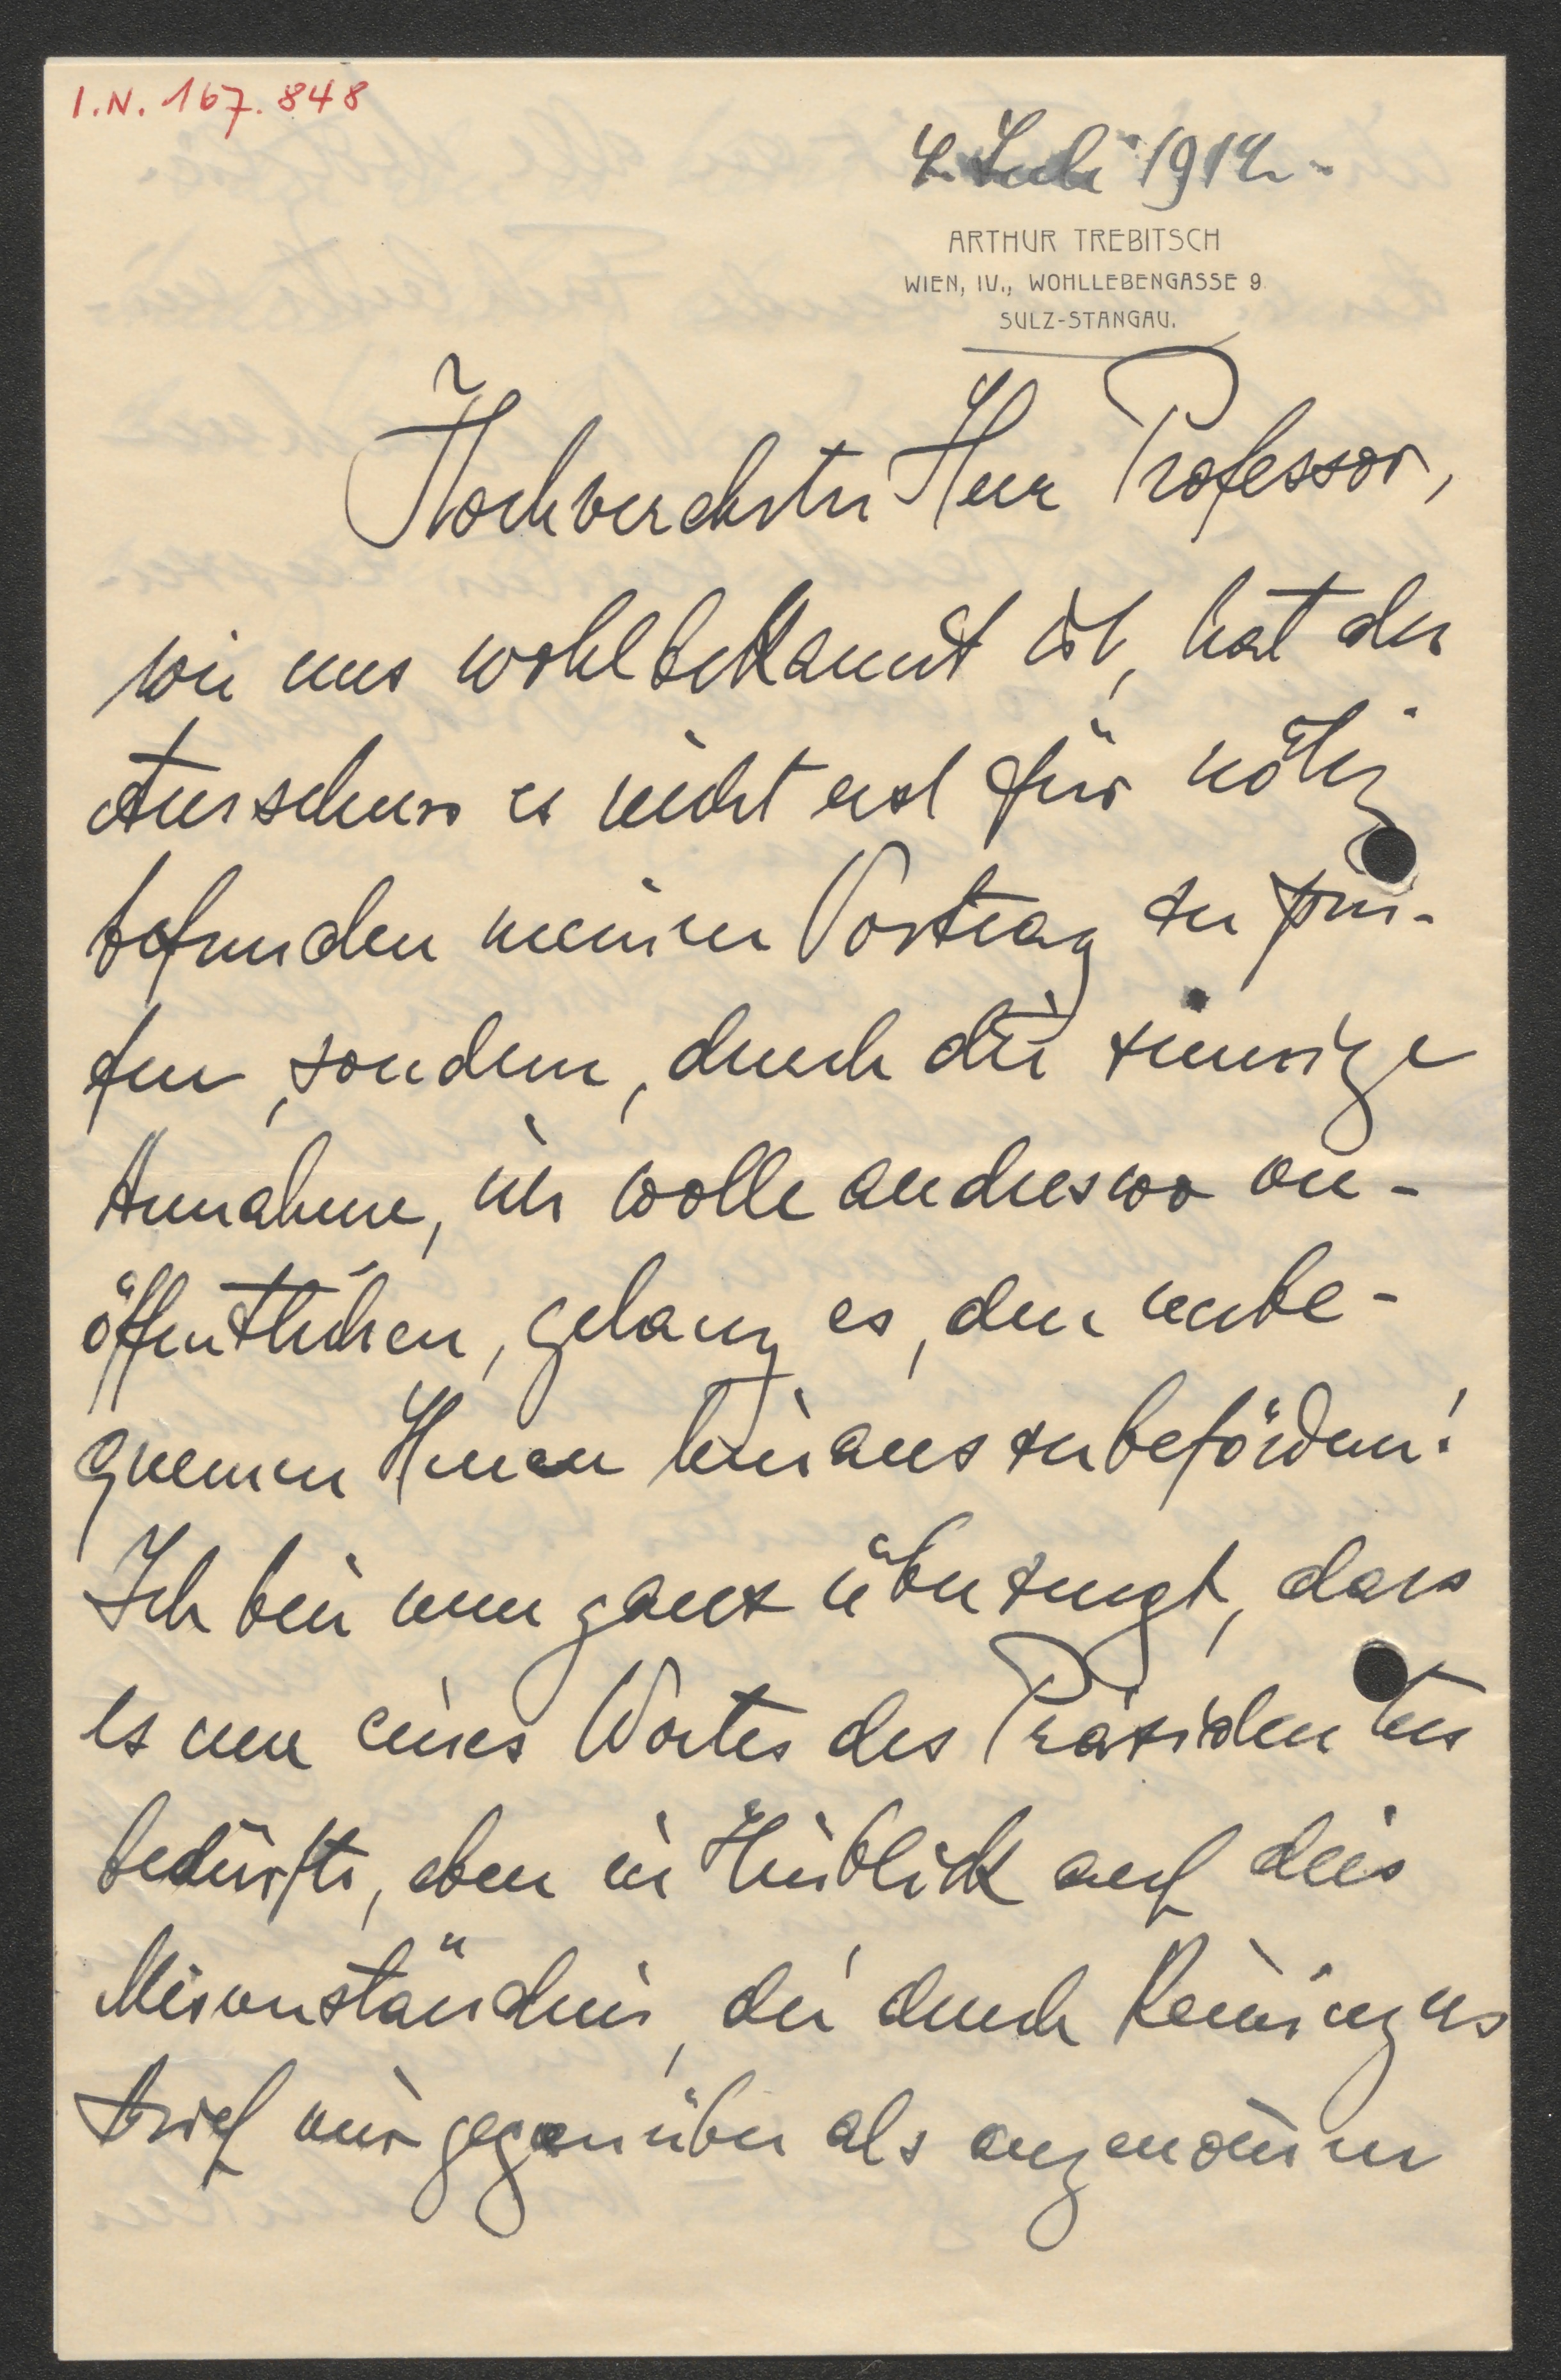 I.N. 167.848
4. Juli 1912.
ARTHUR TREBITSCH
WIEN, IV., WOHLLEBENGASSE 9.
SULZ-STANGAU.
Hochverehrter Herr Professor,
wie uns wohlbekannt ist, hat der
Ausschuss es nicht erst für nötig
befunden meinen Vortrag zu prü-
fen, sondern, durch die sinnige
Annahme, ich wolle anderswo ver-
öffentlichen, gelang es, den unbe-
quemen Herren hinauszubefördern!
Ich bin nun ganz überzeugt, dass
es nur eines Wortes des Präsidenten
bedürfte, eben im Hinblick auf dies
Missverständnis, die durch Reiningers
brief mir gegenüber als angenommen